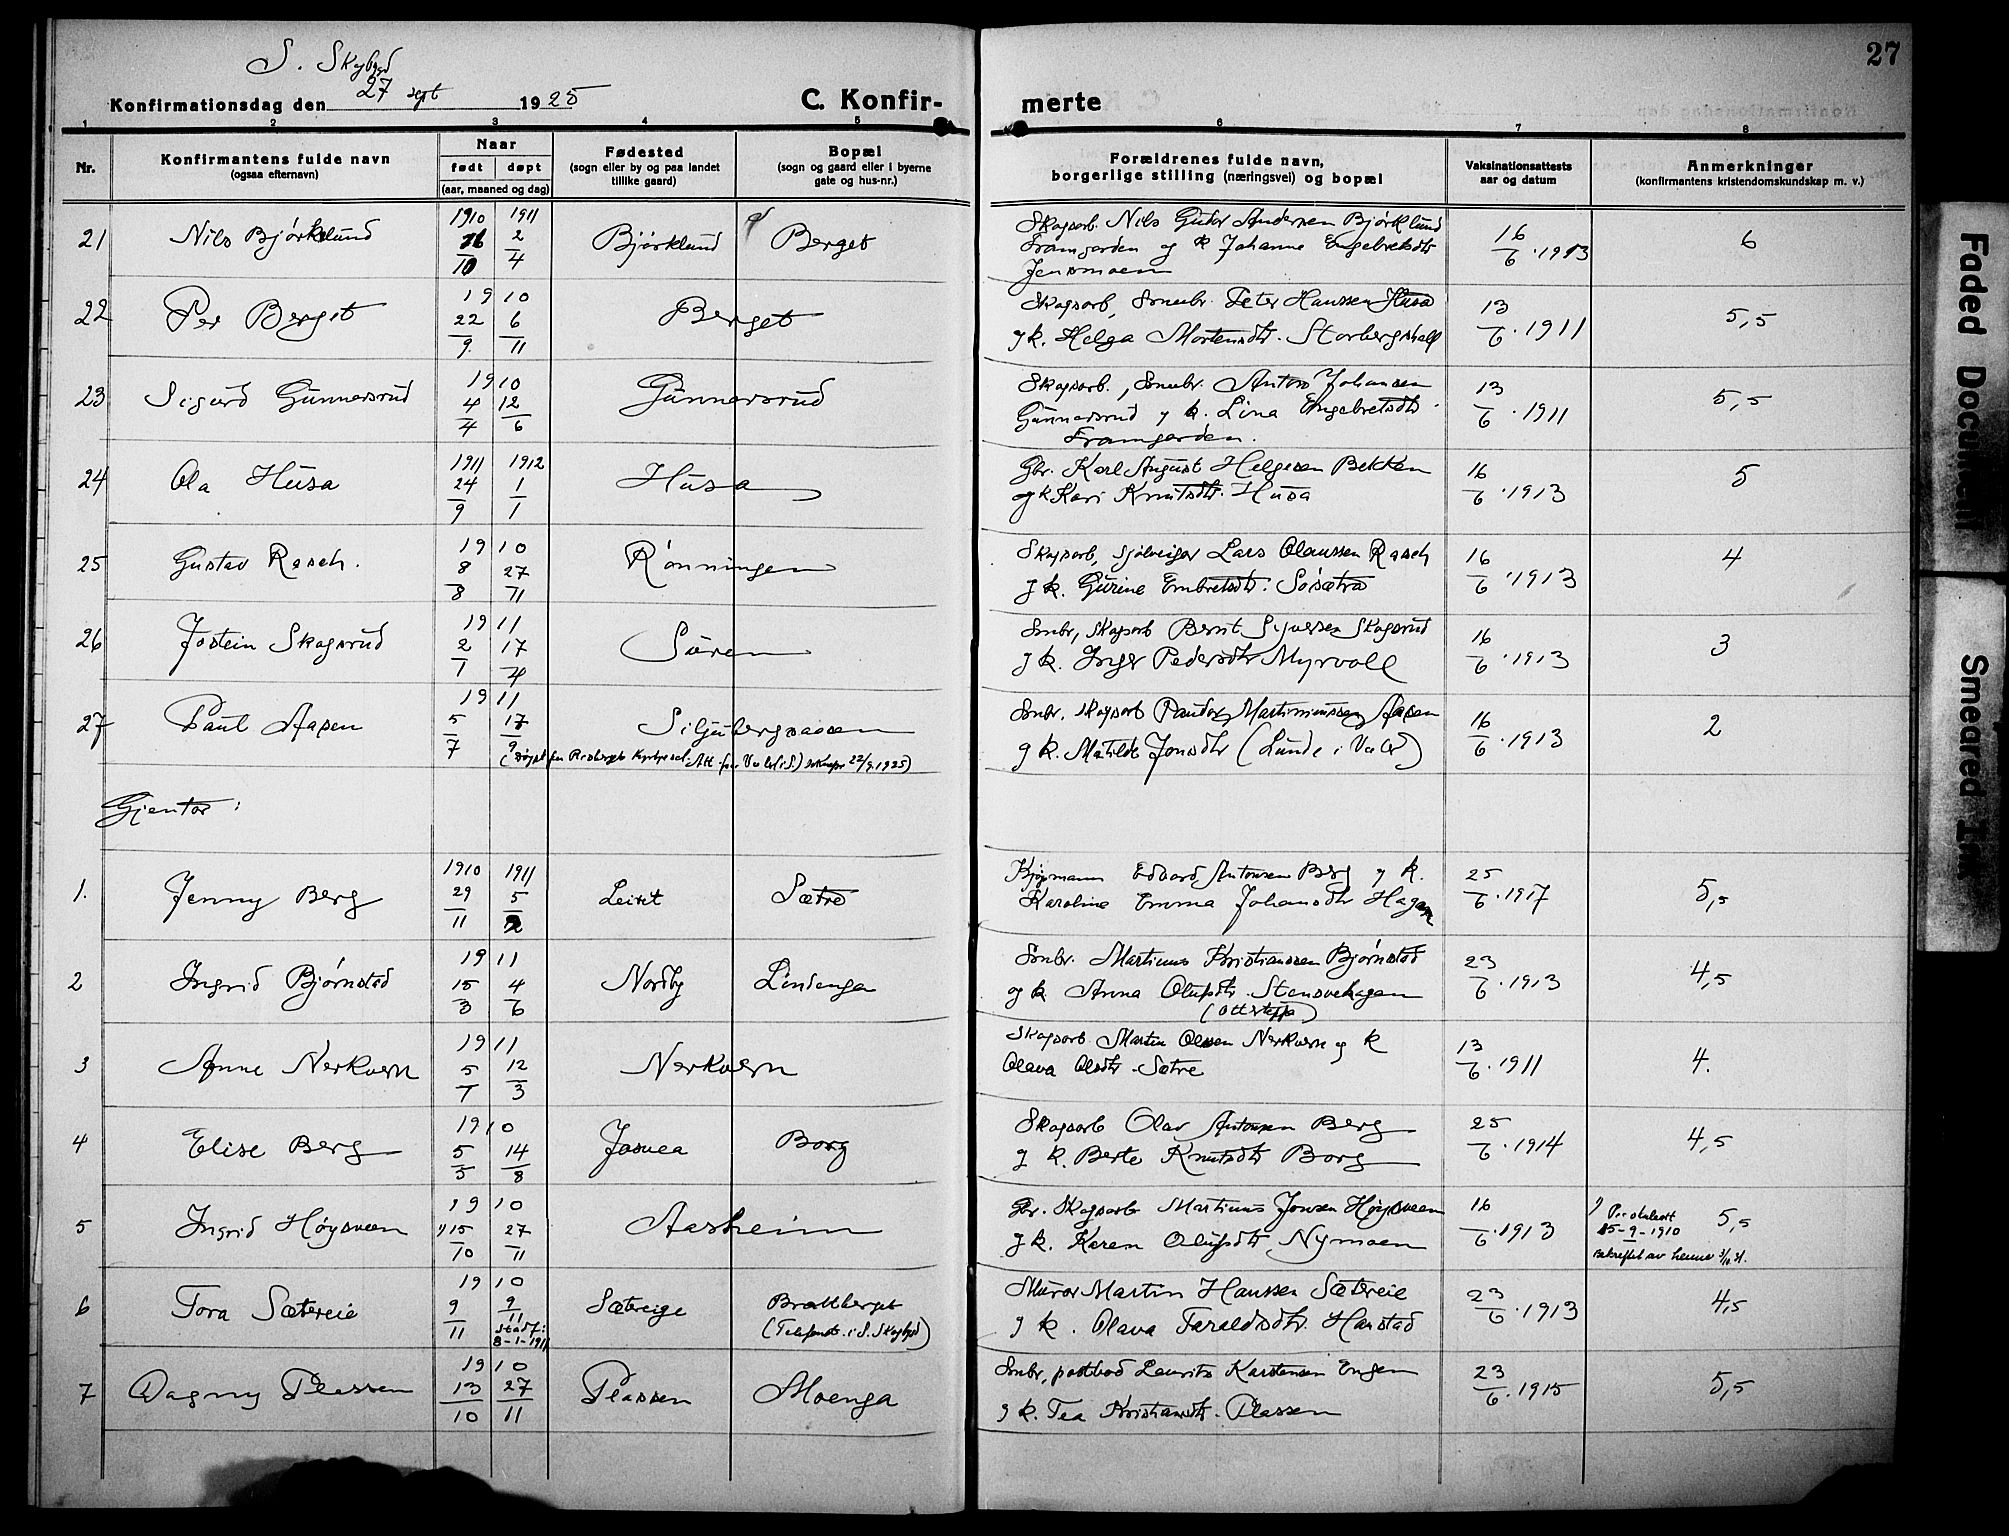 27
S. Skybgd
Konfirmationsdag den 27 sept 1925
C. Konfir-
merte
1 2 3 4 5 6 7 8
Nr.
Konfirmantens fulde navn
(ogsaa efternavn)
Naar
født døpt
(aar, maaned og dag)
Fødested
(sogn eller by og paa landet
tillike gaard)
Bopæl
(sogn og gaard eller i byerne
gate og hus-nr.)
Forældrenes fulde navn,
borgerlige stilling (næringsvei) og bopæl
Vaksinationsattests
aar og datum
Anmerkninger
(konfirmantens kristendomskundskap m. v.)
21 Nils Bjørklund 1910 16/10 1911 2/4 Bjørklund Berget
Skogsarb. Nils Gustav Andersen Bjørklund
Framgarden og k Johanne Engebretsdtr
Jensmoen
16/6 · 1913 6
22 Per Berget 1910 22/9 6/11 Berget
Skogsarb, Snubr. Peter Hanssen Husa
g k. Helga Mortensdtr. Storbergshall
13/6 · 1911 5,5
23 Sigurd Gunnersrud 1910 4/4 12/6 Gunnersrud
Skogsarb., Smbr. Anton Johansen
Gunnersrud g k. Lina Engebretsdtr.
Framgarden.
13/6 · 1911 5,5
24 Ola Husa 1911 24/9 1912 1/1 Husa
Gbr. Karl August Helgesen Bekken
og k Kari Knutsdtr. Husa
16/6 · 1913 5
25 Gustav Rasch. 1910 8/8 27/11 Rønningen
Skogsarb, sjølveigar Lars Olaussen Rasch
g k. Gurine Embretsdtr. Søisætra
16/6 · 1913 4
26 Jostein Skogsrud 1911 2/1 17/4 Søren
Smbr, skogsarb Bernt Syversen Skogsrud
g k. Inger Pedersdtr Myrvoll
16/6 · 1913 3
27 Paul Aasen 1911 5/7 17/9 Siljubergsaasen
Smbr. skogsarb Paulus Martiniussen Aasen
g k. Matilde Jonsdtr (Lunde i Vaaler)
16/6 · 1913 2
Gjentor:
1. Jenny Berg 1910 29/11 1911 5/2 Leiret Sætre
Kjøpmann Edvard Antonsen Berg g k.
Karoline Emma Johansdtr Hagen
25/6 · 1917 5,5
2 Ingrid Bjørnstad 1911 15/3 4/6 Nordby Lindenga
Smbr. Martinus Kristianssen Bjørnstad
og k Anna Olufsdtr. Stensvehagen
23/6 · 1913 4,5
3 Anne Nerkvern 1911 5/1 12/3 Nerkvern
Skogsarb. Martin Olssen Nerkvern og k
Olava Olsdtr. Sætre
13/6 · 1911 4.
4 Elise Berg 1910 5/5 14/8 Jasvea Borg
Skogsarb Olav Antonsen Berg
g k. Berte Knutsdtr Borg
25/6 · 1914 4,5
5 Ingrid Høgsveen 1910 1) 15/10 27/11 Aasheim
Gbr. Skogsarb Martinus Jonsen Høgsveen
g k. Karen Olufsdtr Nymoen
16/6 · 1913 5,5
15-9-1910
bekreftet av henne
6 Tora Sætereie 1910 9/11 9/11 Sætereige Brattberget
stadf:
8-1-1911
Murar Martin Hanssen Sætereie
g k. Olava Taraldsdtr. Harstad
23/6 · 1913 4,5
7 Dagny Plassen 1910 13/10 27/11 Plassen Moenga
Smbr, postbod Laurits Karstensen Engen
g k. Tea Kristiansdtr. Plassen
23/6 · 1915 5,5
Faded Document
Smeared Ink